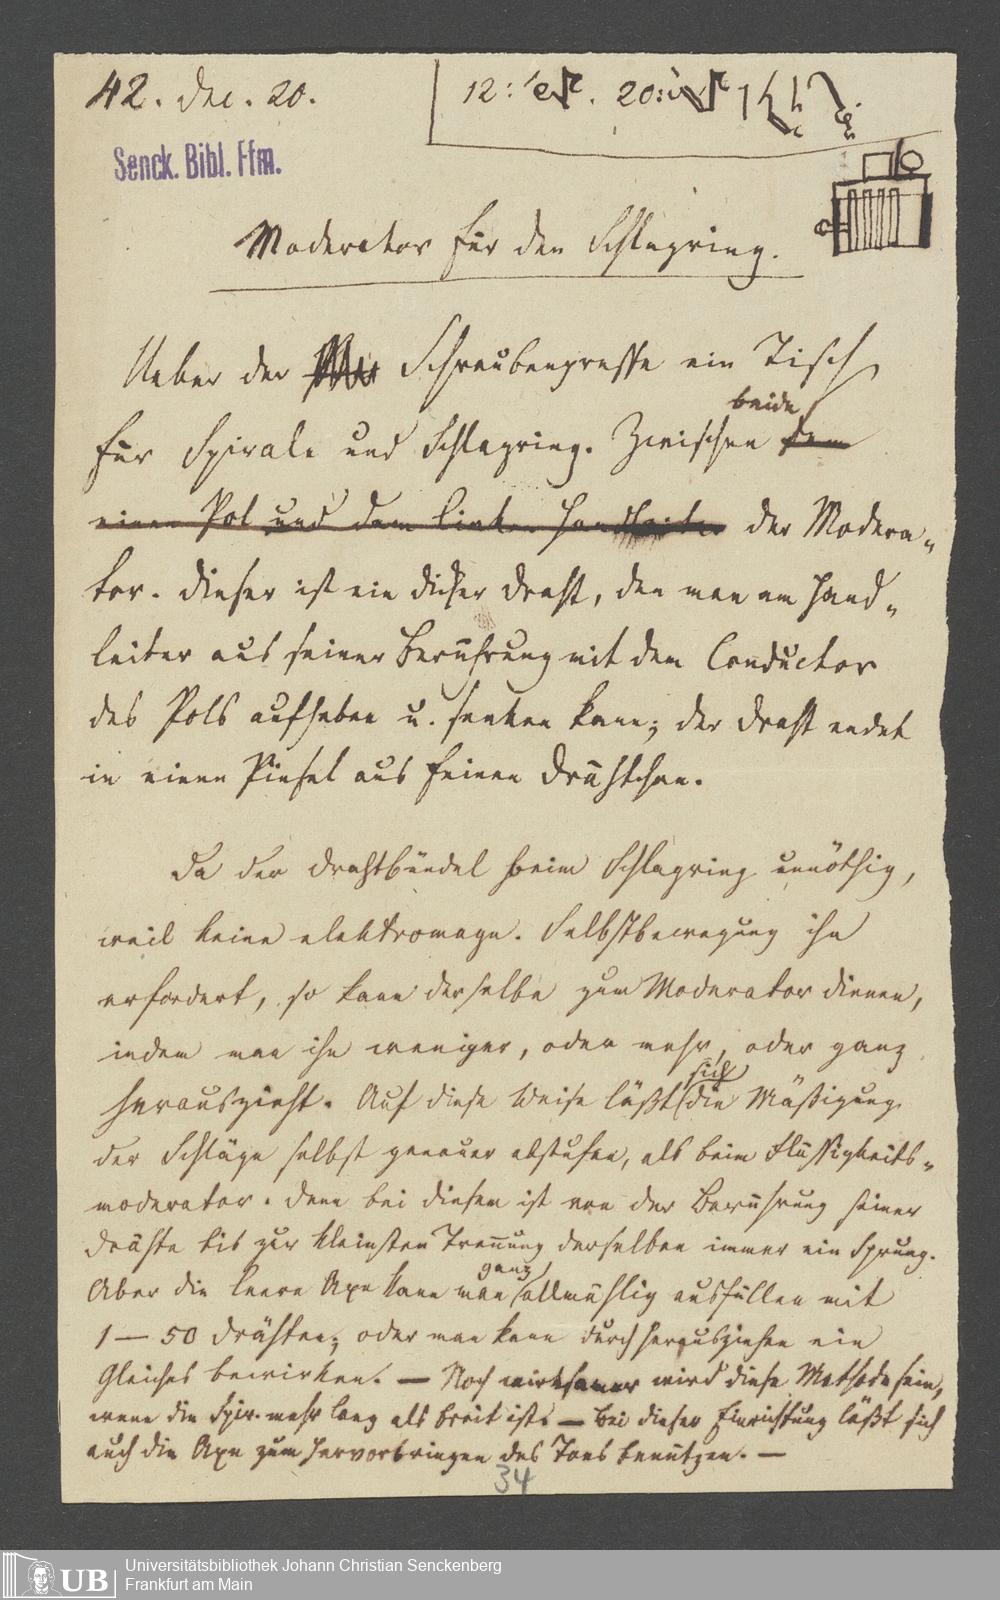 42. Dec. 20.
12: 20:
Senck. Bibl. Ffm.
Moderator für den Schlagring.
Ueber der Schraubenpresse ein Tisch
beide
für Spirale und Schlagring. Zwischen dem
einen Pol und dem linken Handleiter der Modera-
tor. Dieser ist ein dicker Draht, den man am Hand-
leiter aus seiner Berührung mit dem Conductor
des Pols aufheben u. senken kann; der Draht endet
in einen Pinsel aus feinen Drähtchen.
Da der Drahtbündel beim Schlagring unnöthig,
weil keine elektromagn. Selbstbewegung ihn
erfordert, so kann derselbe zum Moderator dienen,
indem man ihn weniger, oder mehr, oder ganz
herauszieht. Auf diese Weise läßt die Mäßigung
sich
der Schläge selbst genauer abstufen, als beim Flüssigkeits-
moderator. Denn bei diesem ist von der Berührung seiner
Drähte bis zur kleinsten Trennung derselben immer ein Sprung.
ganz
Aber die leere Axe kann man allmählig ausfüllen mit
1 – 50 Drähten; oder man kann durch Herausziehen ein
Gleiches bewirken. — Noch wirksamer wird diese Methode sein,
wenn die Spir. mehr lang als breit ist. — Bei dieser Einrichtung läßt sich
auch die Axe zum Hervorbringen des Tons benützen. —
34
UB
Universitätsbibliothek Johann Christian Senckenberg
Frankfurt am Main